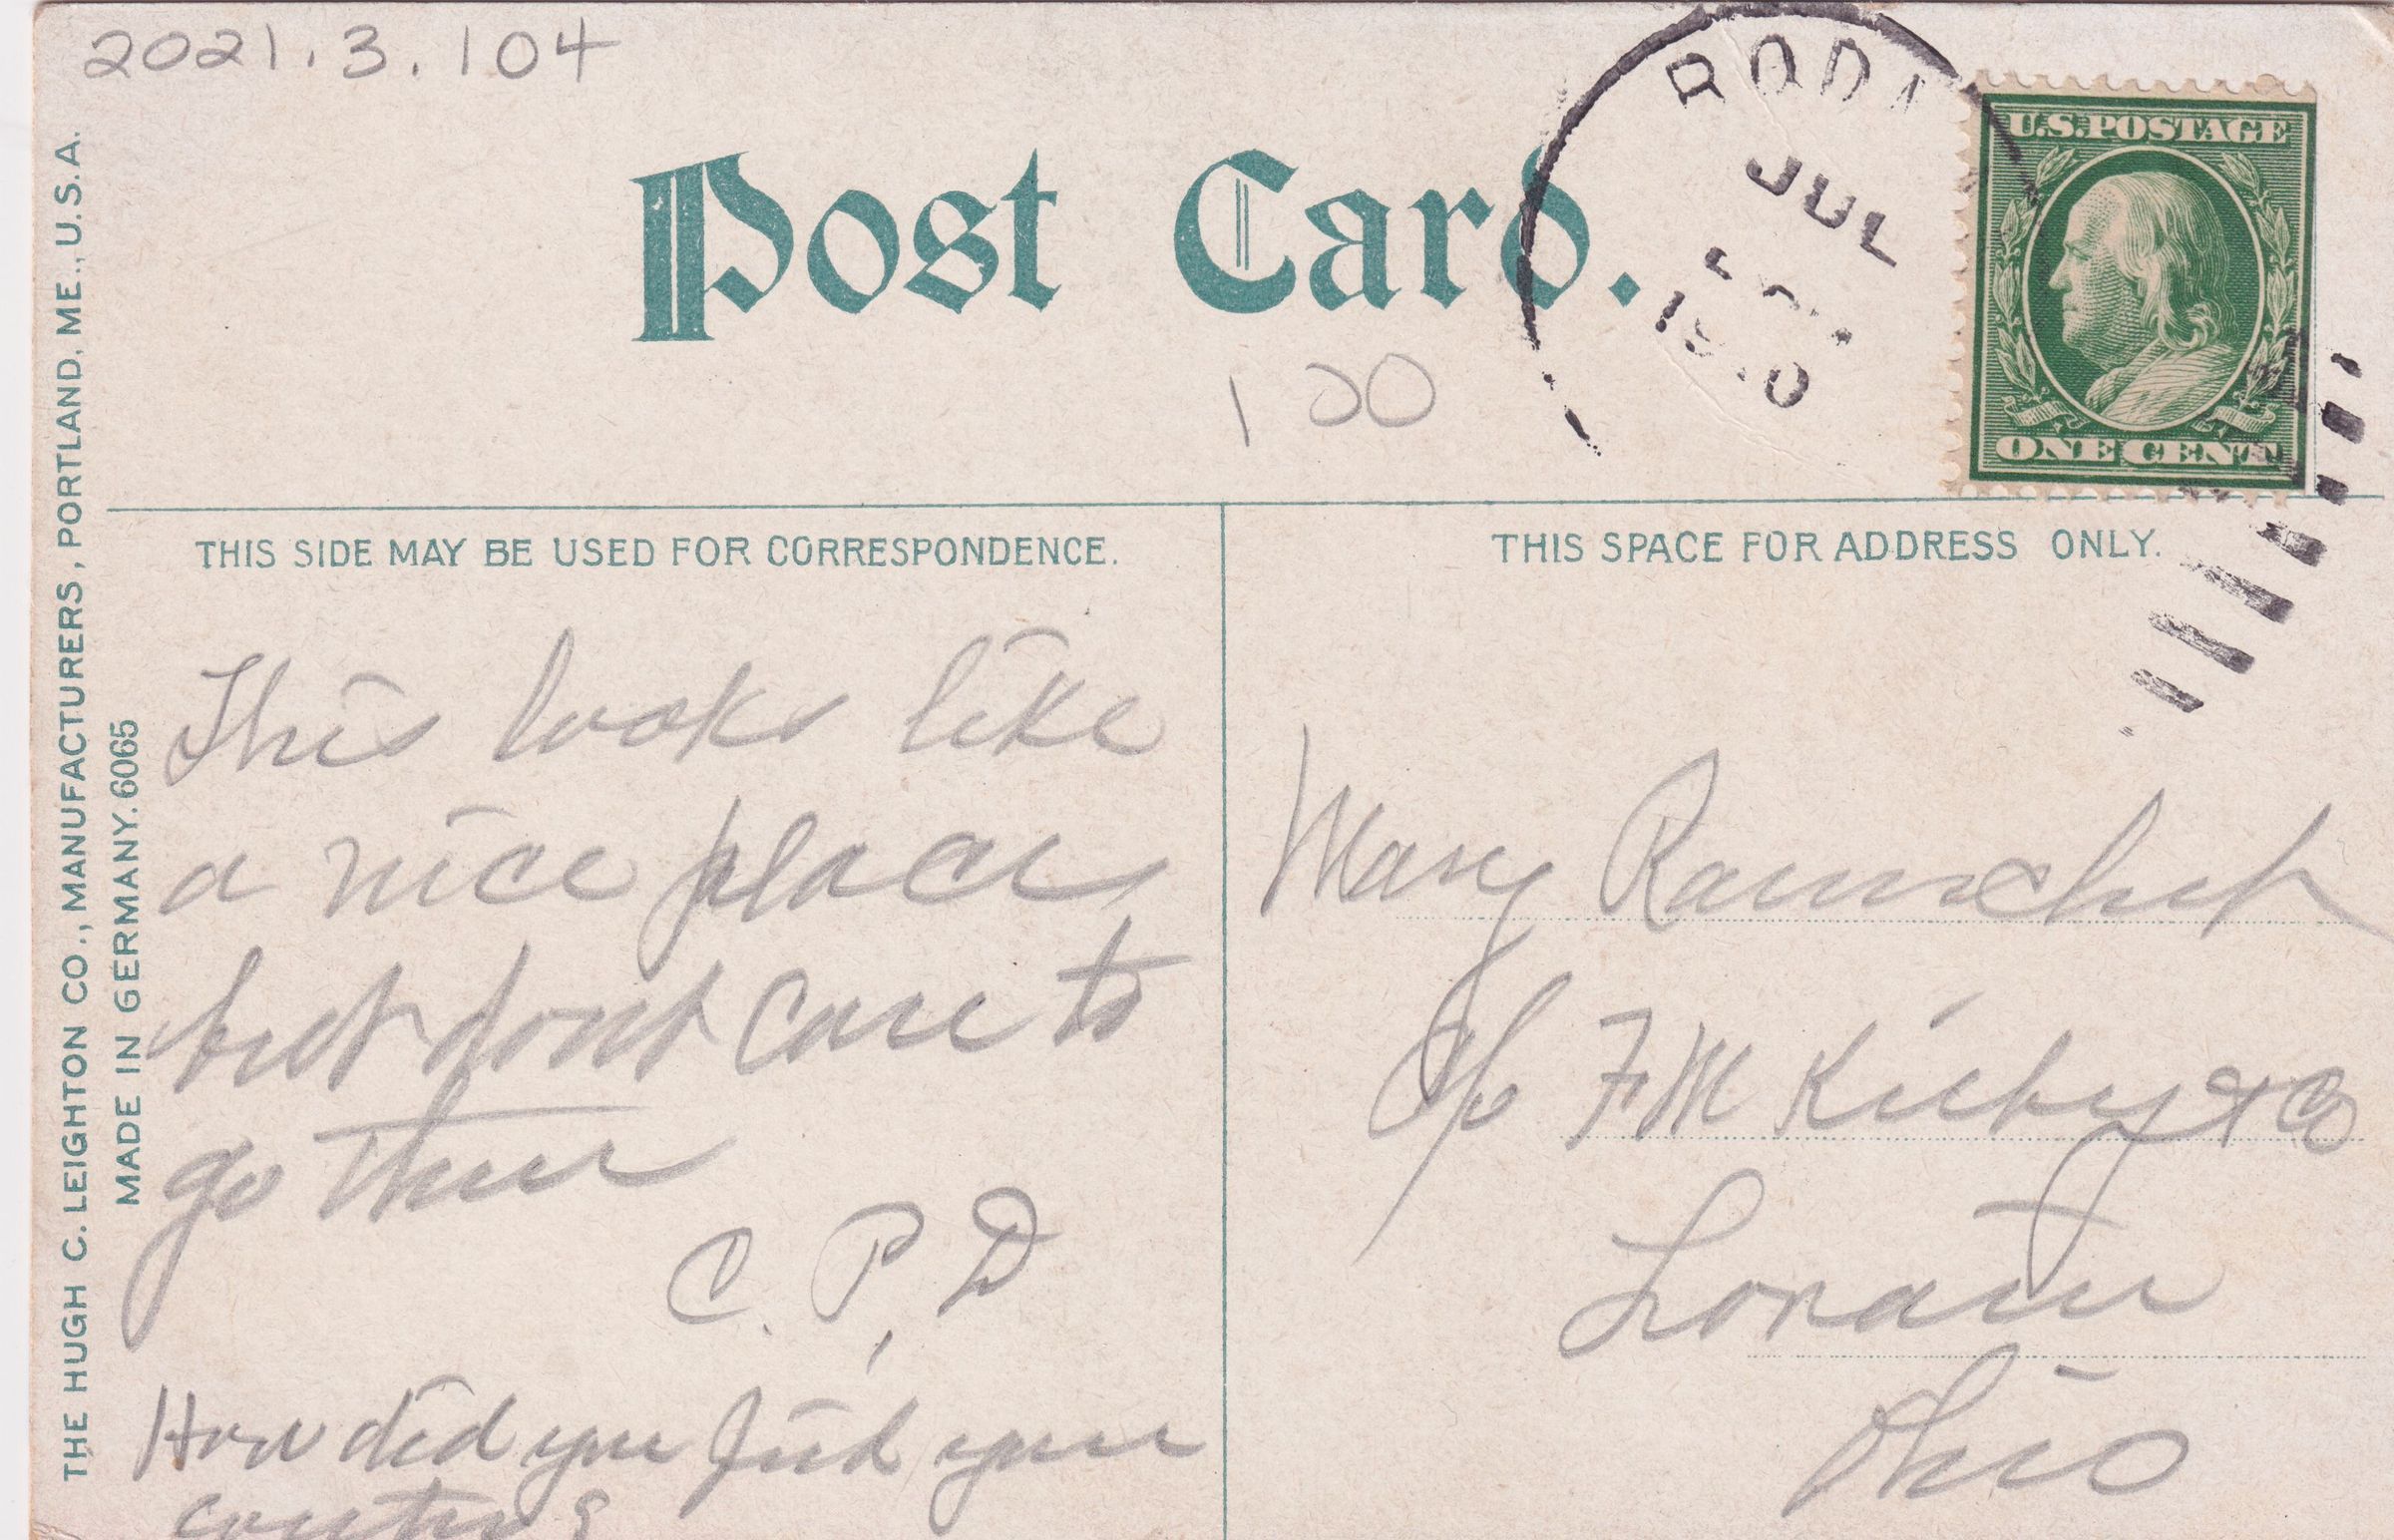 2021.3.104
Post Card.
JUL
U.S. POSTAGE
ONE CENT
100
THE HUGH C. LEIGHTON CO., MANUFACTURERS, PORTLAND, ME., U.S.A.
MADE IN GERMANY. 6065
THIS SIDE MAY BE USED FOR CORRESPONDENCE.
This looks like
a nice place,
but dont care to
go there
C. P. D
How did you find your
THIS SPACE FOR ADDRESS ONLY.
Mary
c/o F M Kirby & Co
Lorain
Ohio